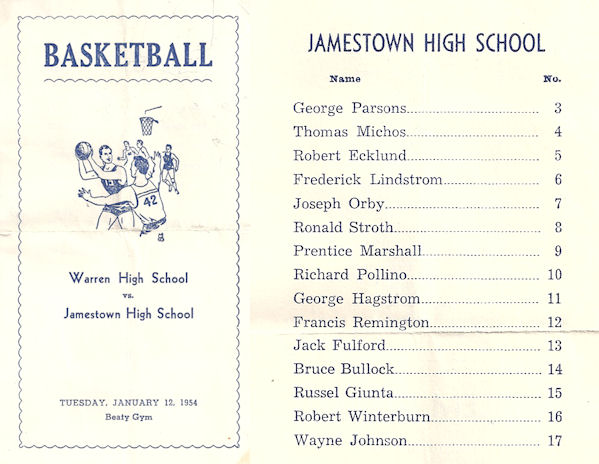 BASKETBALL
42
Warren High School
vs.
Jamestown High School
TUESDAY, JANUARY 12, 1954
Beaty Gym
JAMESTOWN HIGH SCHOOL
Name No.
George Parsons 3
Thomas Michos 4
Robert Ecklund 5
Frederick Lindstrom 6
Joseph Orby 7
Ronald Stroth 8
Prentice Marshall 9
Richard Pollino 10
George Hagstrom 11
Francis Remington 12
Jack Fulford 13
Bruce Bullock 14
Russel Giunta 15
Robert Winterburn 16
Wayne Johnson 17